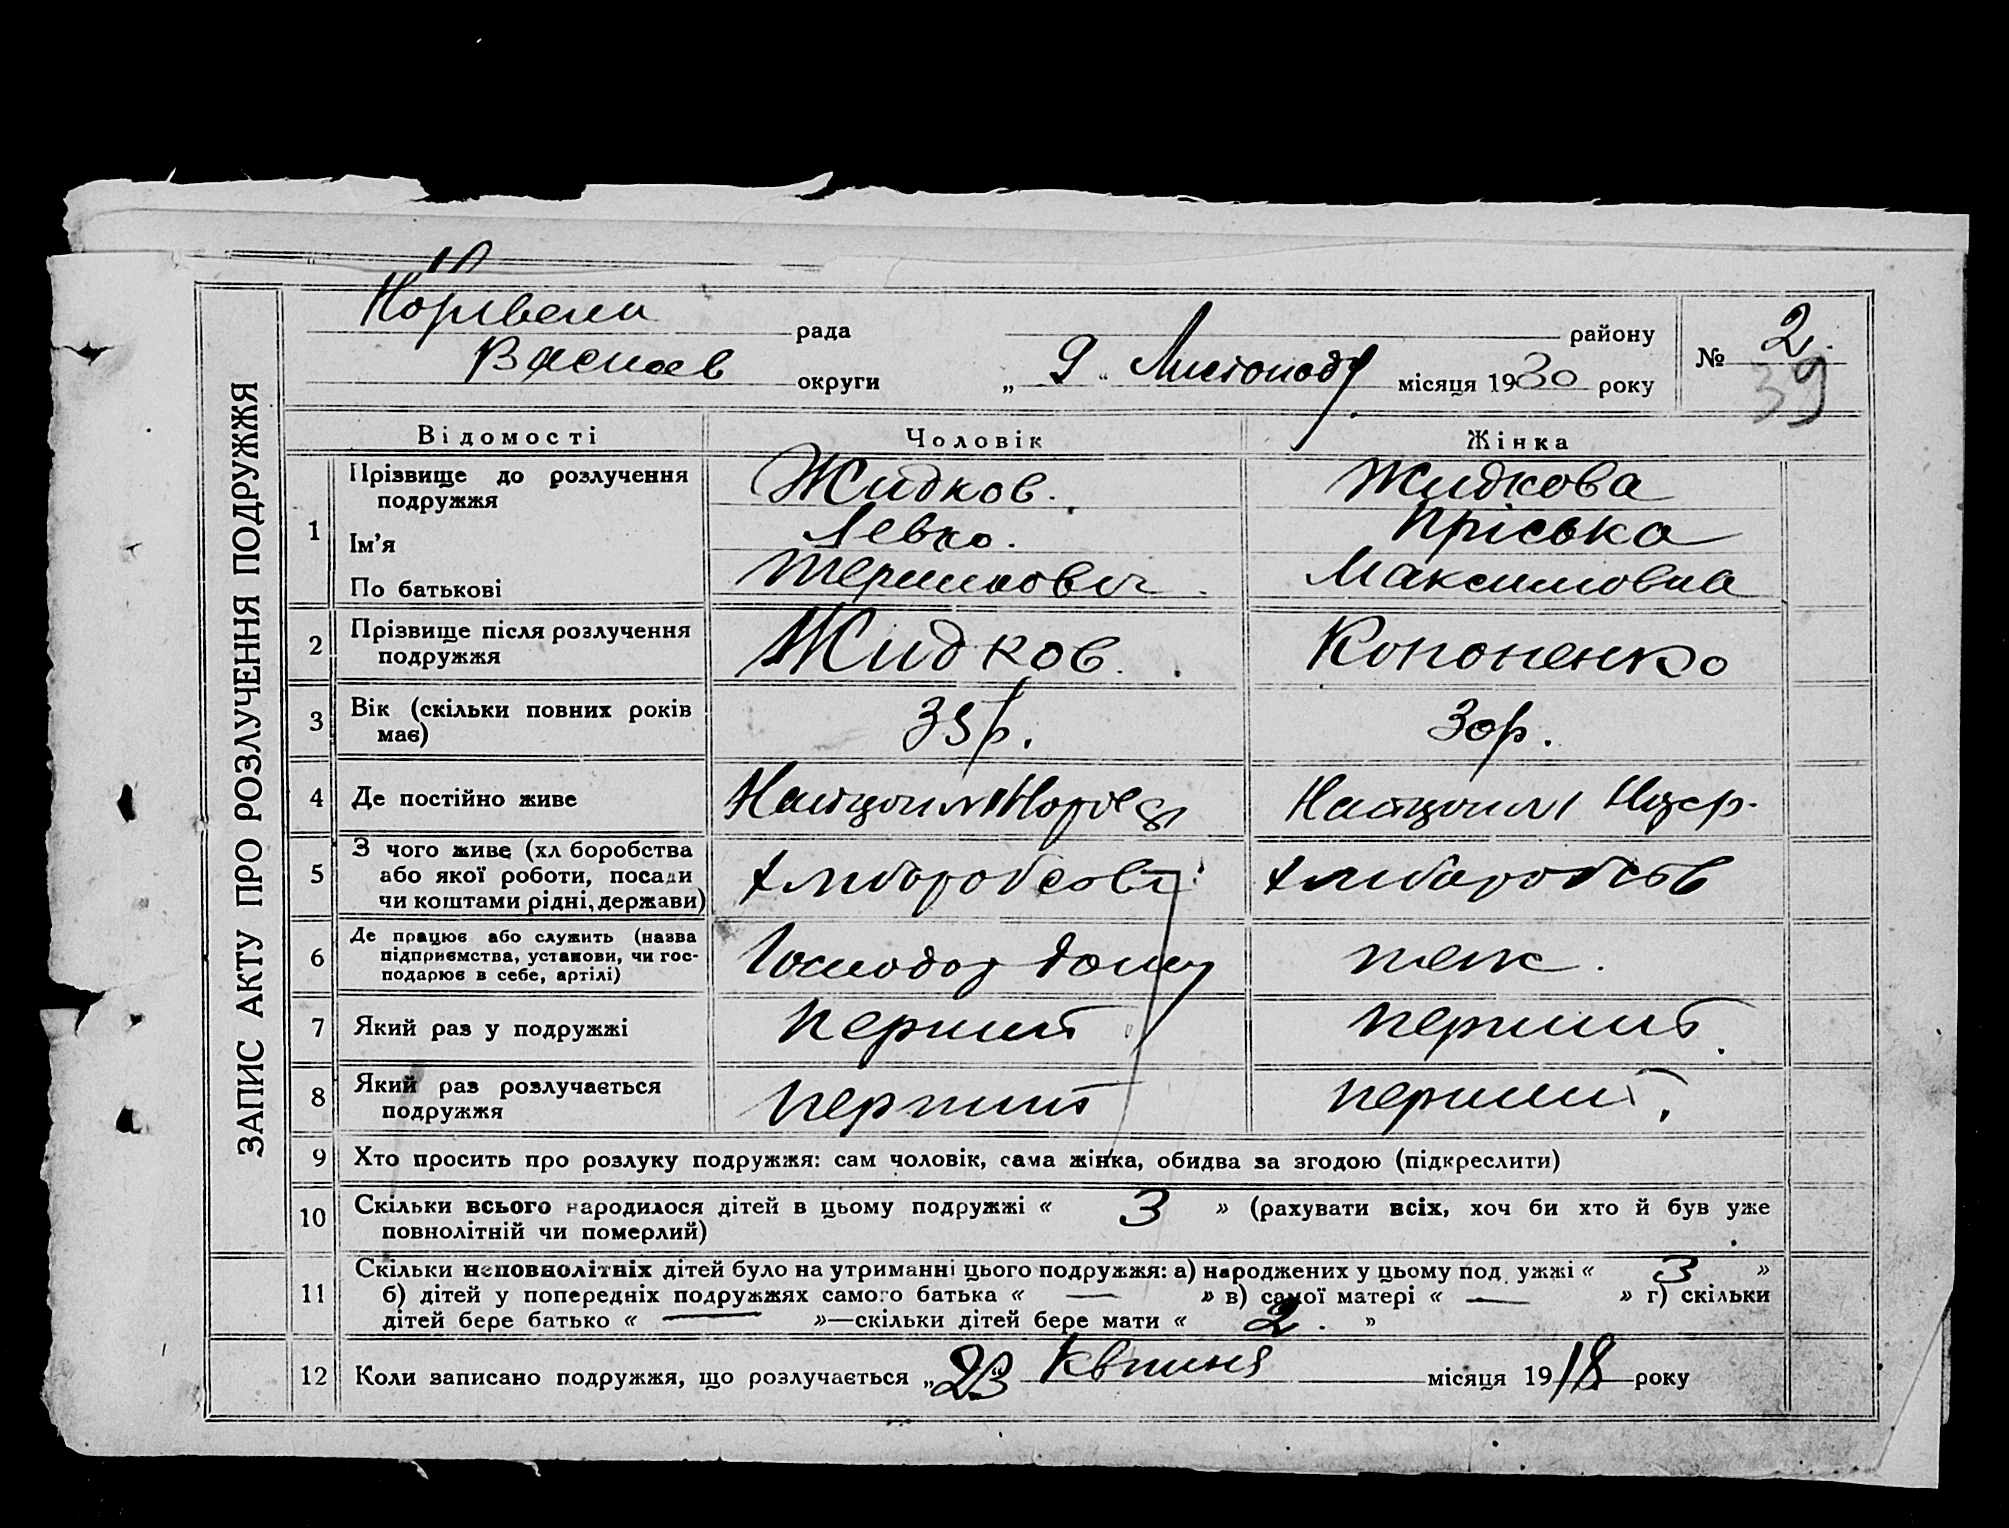 рада
району
№ 2.
округи
„ 9 " Листопада місяця 1930 року
39
ЗАПИС АКТУ ПРО РОЗЛУЧЕННЯ ПОДРУЖЖЯ
Відомості Чоловік Жінка
1 Прізвище до розлучення подружжя Жидков. Жидкова
Ім'я Левко. Пріська
По батькові Максимовна
2 Прізвище після розлучення подружжя Жидков. Кононенко
3 Вік (скільки повних років має) 35 р. 30 р.
4 Де постійно живе
5 З чого живе (хл боробства або якої роботи, посади чи коштами рідні, держави)
6 Де працює або служить (назва підприємства, установи, чи господарює в себе, артілі) теж.
7 Який раз у подружжі перший перший
8 Який раз розлучається подружжя перший перший.
9 Хто просить про розлуку подружжя: сам чоловік, сама жінка, обидва за згодою (підкреслити)
10 Скільки всього народилося дітей в цьому подружжі « 3 » (рахувати всіх, хоч би хто й був уже
повнолітній чи померлий)
11 Скільки неповнолітніх дітей було на утриманні цього подружжя: а) народжених у цьому под ужжі « 3 »
б) дітей у попередніх подружжях самого батька « — » в) самої матері « — » г) скільки
дітей бере батько « — »—скільки дітей бере мати « 2. »
12 Коли записано подружжя, що розлучається „ 23 " Квітня місяця 1918 року